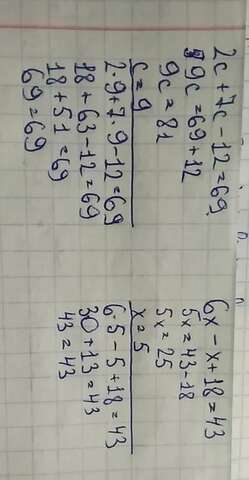 2c + 7c - 12 = 69
9c = 69 + 12
9c = 81
c = 9
2·9 + 7·9 - 12 = 69
18 + 63 - 12 = 69
18 + 51 = 69
69 = 69
6x - x + 18 = 43
5x = 43 - 18
5x = 25
x = 5
6·5 - 5 + 18 = 43
30 + 13 = 43
43 = 43